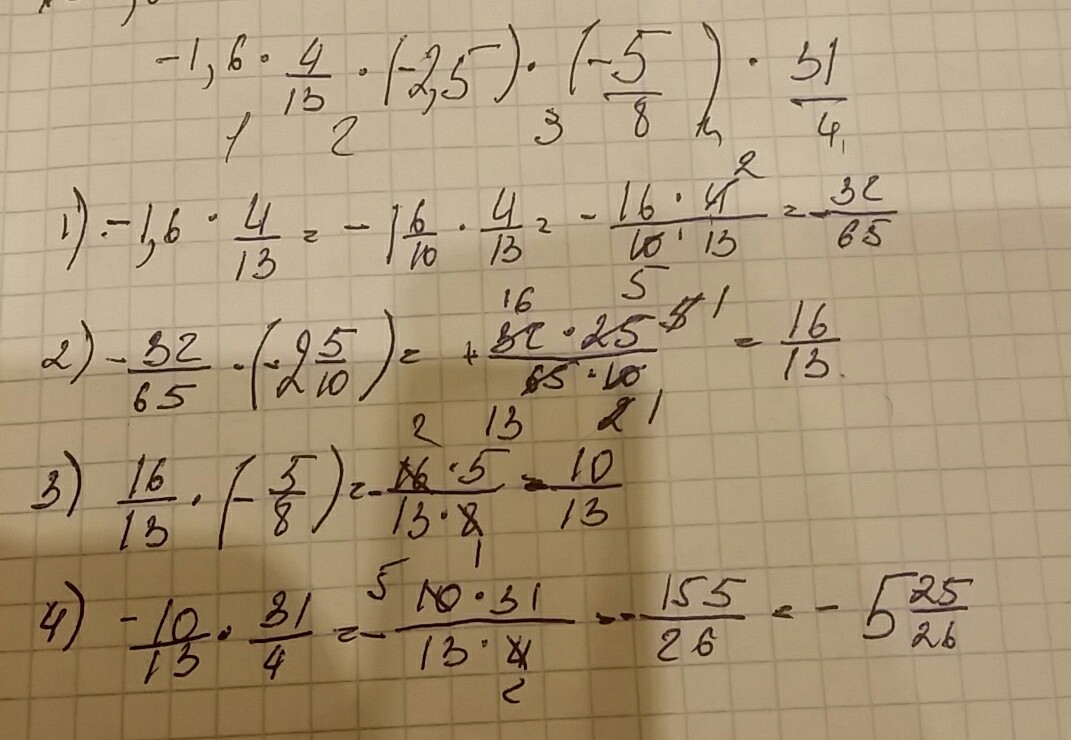 -1,6 · 4/13 · (-2,5) · (-5/8) · 31/4
1 2 3 4
1) -1,6 · 4/13 = -1 6/10 · 4/13 = - 16 · 4 2 / 10 5 · 13 = - 32/65
2) - 32/65 · (-2 5/10) = + 16 32 · 25 5 1 / 65 13 · 10 2 1 = 16/13
3) 16/13 · (- 5/8) = - 2 16 · 5 / 13 · 8 1 = - 10/13
4) - 10/13 · 31/4 = - 5 10 · 31 / 13 · 4 2 = - 155/26 = - 5 25/26